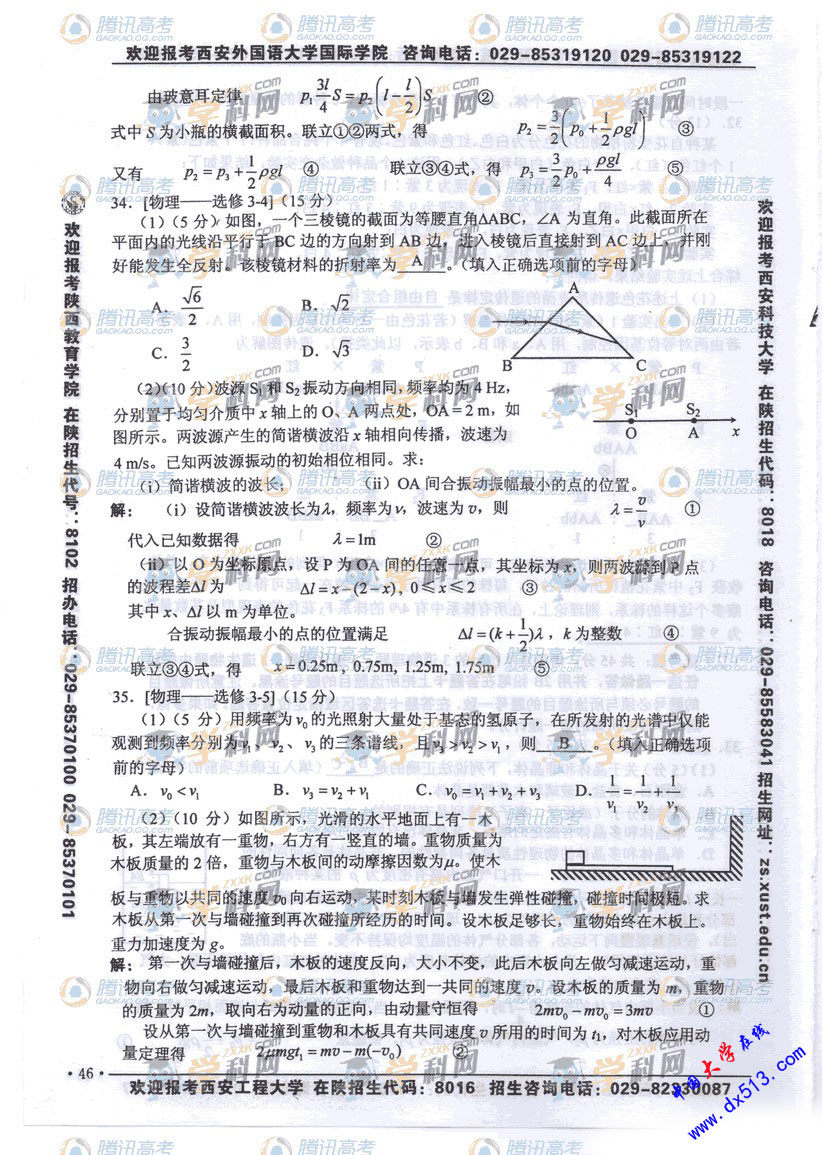 欢迎报考西安外国语大学国际学院 咨询电话：029-85319120 029-85319122
由玻意耳定律 p₁ 3l/4 S = p₂(l - l/2)S ②
式中 S 为小瓶的横截面积。联立①②两式，得 p₂ = 3/2(p₀ + 1/2 ρgl) ③
又有 p₂ = p₃ + 1/2 ρgl ④ 联立③④式，得 p₃ = 3/2 p₀ + ρgl/4 ⑤
34. [物理——选修 3-4]（15 分）
（1）（5 分）如图，一个三棱镜的截面为等腰直角△ABC，∠A 为直角。此截面所在
平面内的光线沿平行于 BC 边的方向射到 AB 边，进入棱镜后直接射到 AC 边上，并刚
好能发生全反射。该棱镜材料的折射率为 A 。（填入正确选项前的字母）
A. √6/2 B. √2
C. 3/2 D. √3
A
B C
（2）(10 分)波源 S₁ 和 S₂ 振动方向相同，频率均为 4 Hz，
分别置于均匀介质中 x 轴上的 O、A 两点处，OA = 2 m，如
图所示。两波源产生的简谐横波沿 x 轴相向传播，波速为
4 m/s。已知两波源振动的初始相位相同。求：
S₁ S₂
O A x
（i）简谐横波的波长； （ii）OA 间合振动振幅最小的点的位置。
解： （i）设简谐横波波长为λ，频率为ν，波速为 υ，则 λ = υ/ν ①
代入已知数据得 λ = 1m ②
（ii）以 O 为坐标原点，设 P 为 OA 间的任意一点，其坐标为 x，则两波源到 P 点
的波程差Δl 为 Δl = x - (2 - x), 0 ⩽ x ⩽ 2 ③
其中 x、Δl 以 m 为单位。
合振动振幅最小的点的位置满足 Δl = (k + 1/2)λ，k 为整数 ④
联立③④式，得 x = 0.25m, 0.75m, 1.25m, 1.75m ⑤
35. [物理——选修 3-5]（15 分）
（1）（5 分）用频率为 ν₀ 的光照射大量处于基态的氢原子，在所发射的光谱中仅能
观测到频率分别为 ν₁、ν₂、ν₃ 的三条谱线，且 ν₃ > ν₂ > ν₁，则 B 。（填入正确选项
前的字母）
A. ν₀ < ν₁ B. ν₃ = ν₂ + ν₁ C. ν₀ = ν₁ + ν₂ + ν₃ D. 1/ν₁ = 1/ν₂ + 1/ν₃
（2）（10 分）如图所示，光滑的水平地面上有一木
板，其左端放有一重物，右方有一竖直的墙。重物质量为
木板质量的 2 倍，重物与木板间的动摩擦因数为μ。使木
板与重物以共同的速度 υ₀ 向右运动，某时刻木板与墙发生弹性碰撞，碰撞时间极短。求
木板从第一次与墙碰撞到再次碰撞所经历的时间。设木板足够长，重物始终在木板上。
重力加速度为 g。
解： 第一次与墙碰撞后，木板的速度反向，大小不变，此后木板向左做匀减速运动，重
物向右做匀减速运动，最后木板和重物达到一共同的速度 υ。设木板的质量为 m，重物
的质量为 2m，取向右为动量的正向，由动量守恒得 2mv₀ - mv₀ = 3mv ①
设从第一次与墙碰撞到重物和木板具有共同速度 υ 所用的时间为 t₁，对木板应用动
量定理得 2μmgt₁ = mv - m(-v₀) ②
·46·
欢迎报考西安工程大学 在陕招生代码：8016 招生咨询电话：029-82330087
欢迎报考陕西教育学院 在陕招生代号：8102 招办电话：029-85370100 029-85370101
欢迎报考西安科技大学 在陕招生代码：8018 咨询电话：029-85583041 招生网址：zs.xust.edu.cn
腾讯高考
GAOKAO.QQ.COM
学科网
ZXXK.COM
中国大学在线
www.dx513.com